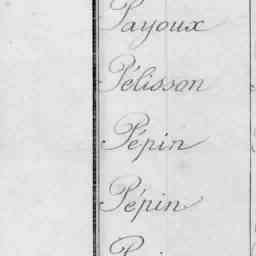 Payoux
Pélisson
Pépin
Pépin